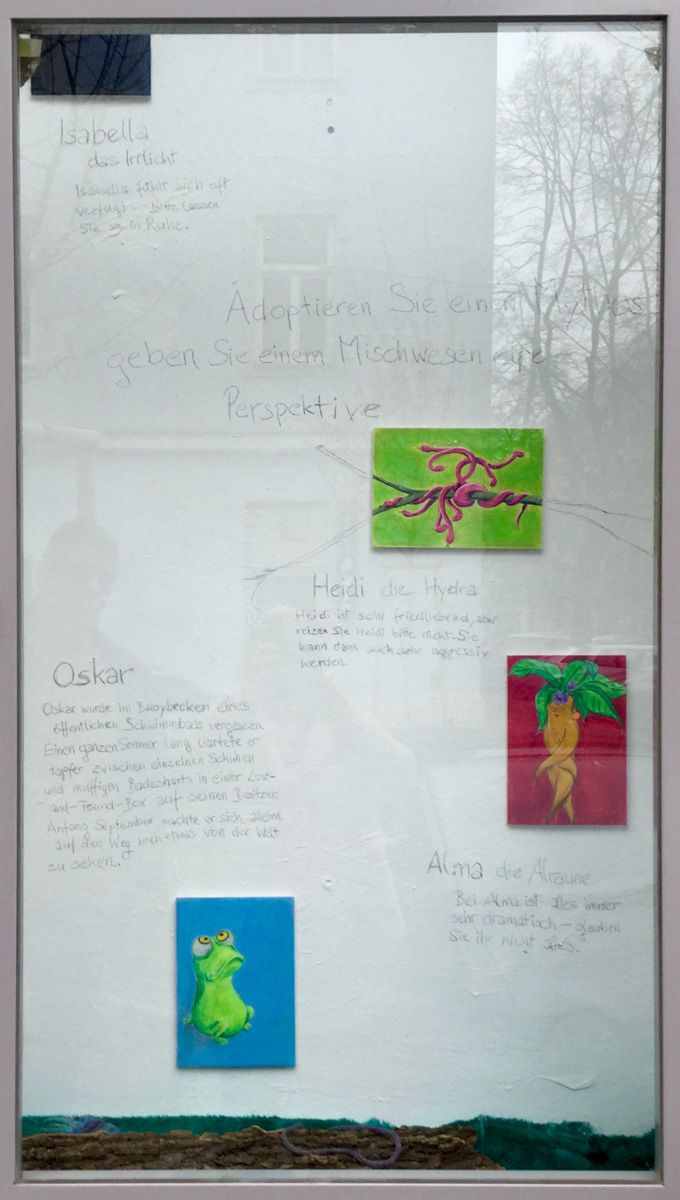 Isabella
das Irrlicht
Isabella fühlt sich oft
verfolgt - bitte lassen
Sie sie in Ruhe.
Adoptieren Sie einen Mythos
geben Sie einem Mischwesen eine
Perspektive
Heidi die Hydra
Heidi ist sehr friedliebend, aber
reizen Sie Heidi bitte nicht. Sie
kann dann auch sehr aggressiv
werden.
Oskar
Oskar wurde im Babybecken eines
öffentlichen Schwimmbads vergessen.
Einen ganzen Sommer lang wartete er
tapfer zwischen einzelnen Schuhen
und muffigen Badeshorts in einer Lost-
and-Found-Box auf seinen Besitzer.
Anfang September machte er sich alleine
auf den Weg noch etwas von der Welt
zu sehen.
Alma die Alraune
Bei Alma ist alles immer
sehr dramatisch - glauben
Sie ihr nicht alles.